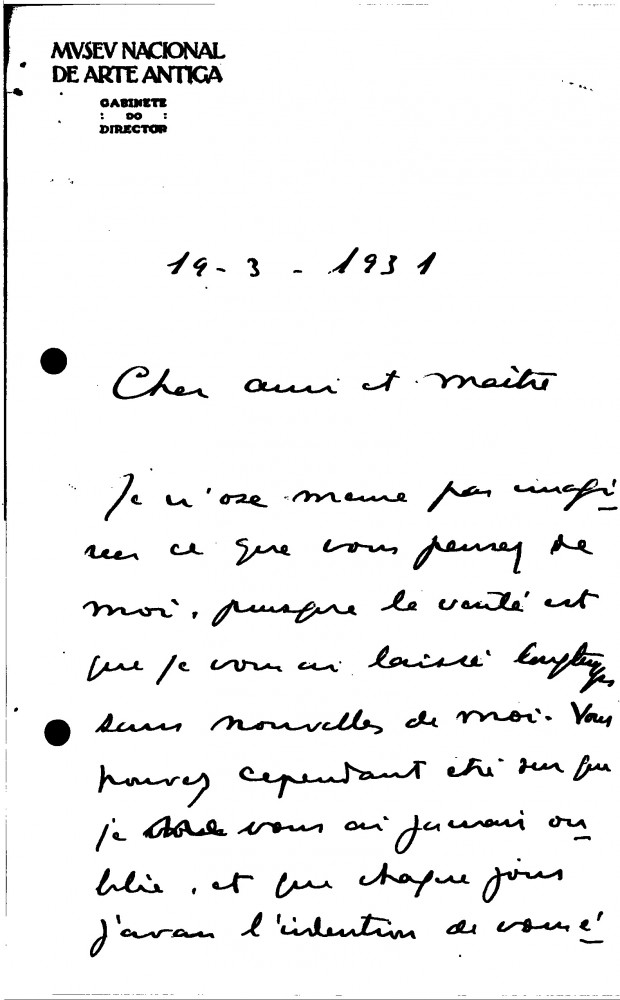 MVSEV NACIONAL
DE ARTE ANTIGA
GABINETE
: DO :
DIRECTOR
19-3-1931
Cher ami et maître
Je n'ose meme pas imagi
ner ce que vous pensez de
moi, puisque la verité est
que je vous ai laissé longtemps
sans nouvelles de moi. Vous
pouvez cependant etre sur que
je vous ai jamais ou
blié, et que chaque jour
j'avais l'intention de vous é